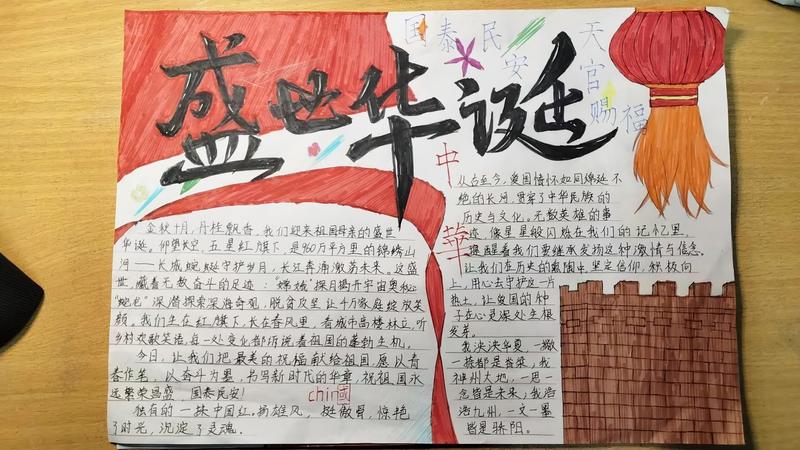 盛世华诞
国泰民安
天官赐福
中華
金秋十月,丹桂飘香。我们迎来祖国母亲的盛世
华诞。仰望长空,五星红旗下,是960万平方里的锦绣山
河——长城蜿蜒守护岁月,长江奔涌激荡未来。这盛
世,藏着无数奋斗的足迹:“嫦娥”探月揭开宇宙奥秘,
“蛟龙”深潜探索深海奇观,脱贫攻坚让千万家庭绽放笑
颜。我们生在红旗下,长在春风里,看城市高楼林立,听
乡村欢歌笑语,每一处变化都诉说着祖国的蓬勃生机。
今日,让我们把最美的祝福献给祖国,愿以青
春作笔,以奋斗为墨,书写新时代的华章,祝祖国永
远繁荣昌盛,国泰民安!
chin國
独有的一抹中国红。扬雄风,挺傲骨,惊艳
了时光,沉淀了灵魂。
从古至今,爱国情怀如同绵延不
绝的长河,贯穿了中华民族的
历史与文化。无数英雄的事
迹,像星星般闪烁在我们的记忆里,
提醒着我们要继承发扬这种激情与信念。
让我们在历史的氛围中,坚定信仰,积极向
上,用心去守护这一片
热土,让爱国的种
子在心灵深处生根
发芽。
我泱泱华夏,一撇
一捺都是脊梁;我
神州大地,一思一
念皆是未来;我浩
浩九州,一文一墨
皆是骄阳。